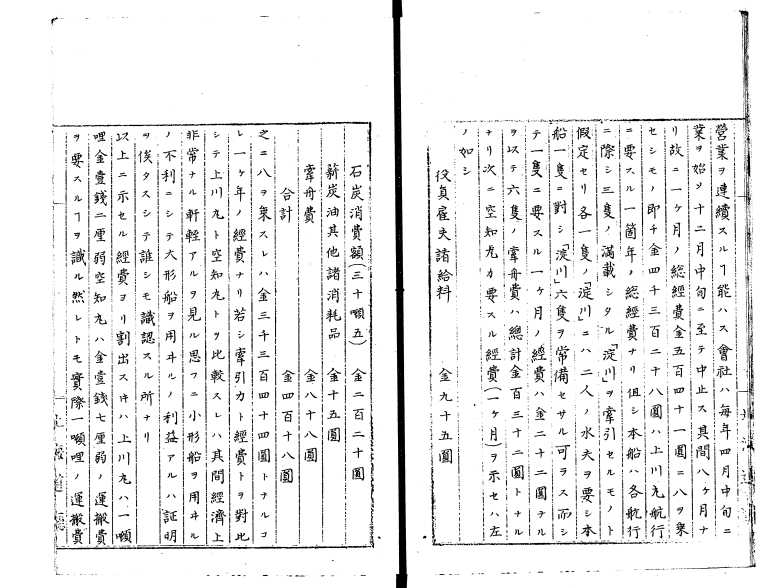 營業ヲ連續スルヿ能ハス會社ハ毎年四月中旬ニ
業ヲ始メ十二月中旬ニ至テ中止ス其間八ヶ月ナ
リ故ニ一ヶ月ノ總經費金五百四十一圓ニ八ヲ乗
セシモノ即チ金四千三百二十八圓ハ上川丸航行
ニ要スル一箇年ノ總經費ナリ但シ本船ハ各航行
ニ際シ三隻ノ滿載シタル「淀川」ヲ牽引セルモノト
假定セリ各一隻ノ「淀川」ニハ二人ノ水夫ヲ要シ本
船一隻ニ對シ「淀川」六隻ヲ常備セサル可ラス而シ
テ一隻ニ要スル一ヶ月ノ經費ハ金二十二圓ナル
ヲ以テ六隻ノ牽舟費ハ總計金百三十二圓トナル
ナリ次ニ空知丸カ要スル經費(一ヶ月)ヲ示セハ左
ノ如シ
役員雇夫諸給料 金九十五圓
石炭消費額(三十噸五) 金二百二十圓
薪炭油其他諸消耗品 金十五圓
牽舟費 金八十八圓
合計 金四百十八圓
之ニ八ヲ乗スレハ金三千三百四十四圓トナルコ
レ一ヶ年ノ經費ナリ若シ牽引力ト經費トヲ對比
シテ上川丸ト空知丸トヲ比較スレハ其間經濟上
非常ナル軒輊アルヲ見ル思フニ小形船ヲ用ヰル
ノ不利ニシテ大形船ヲ用ヰルノ利益アルハ証明
ヲ俟タスシテ誰シモ識認スル所ナリ
以上ニ示セル經費ヨリ割出スキハ上川丸ハ一噸
哩金壹錢二厘弱空知丸ハ金壹錢七厘弱ノ運搬費
ヲ要スルヿヲ識ル然レトモ實際一噸哩ノ運搬費